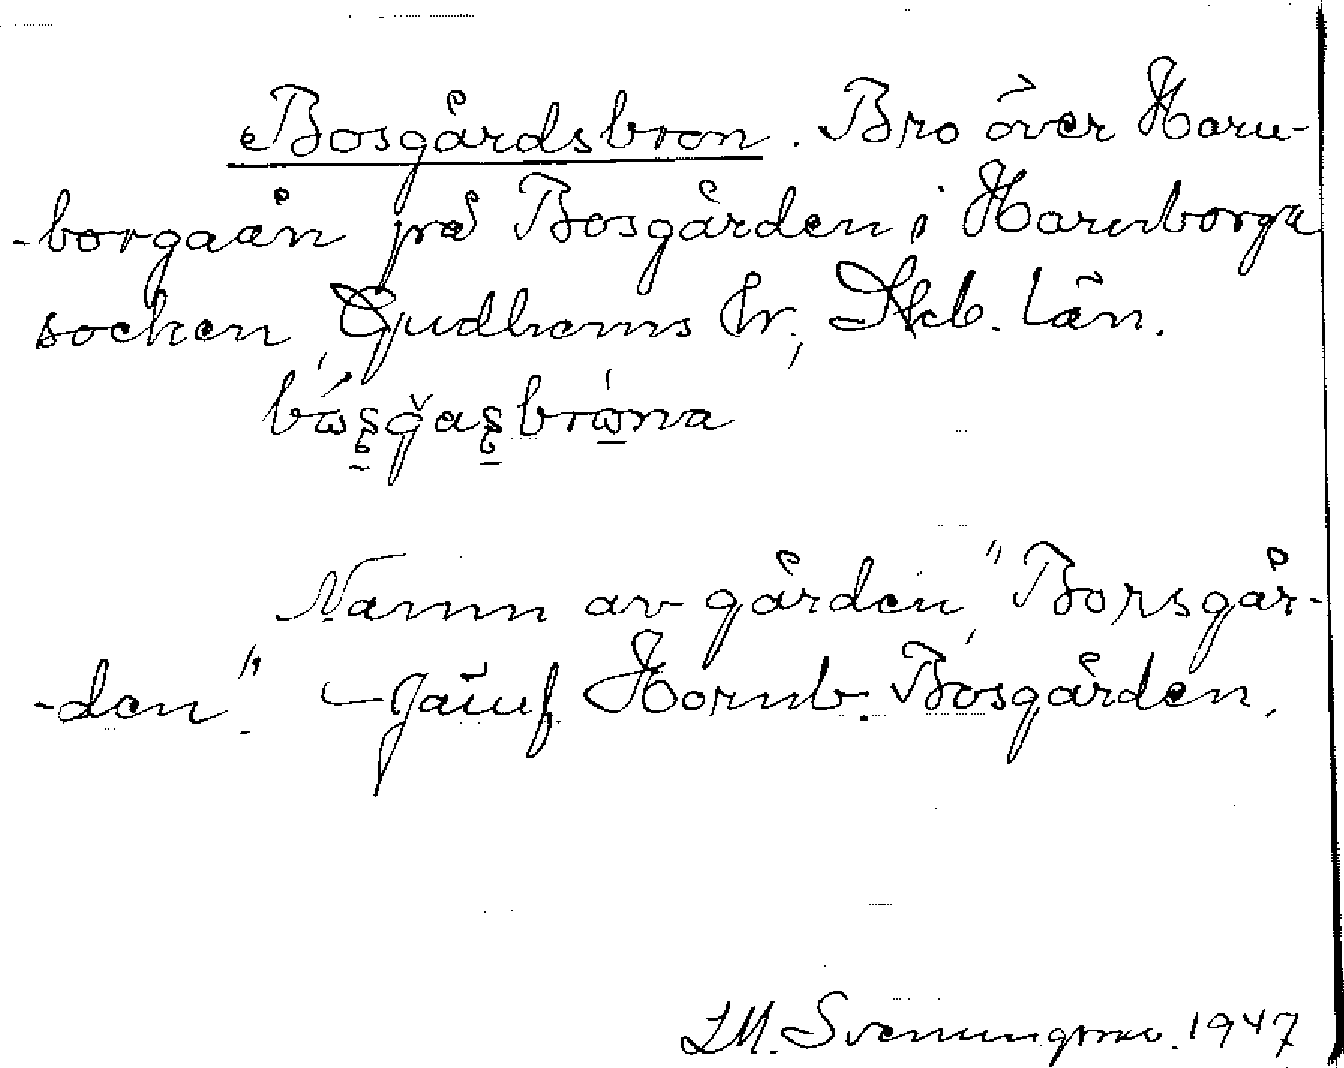 Bosgårdsbron. Bro över Horn-
-borgaån på Bosgården i Hornborga
socken, Gudhems hr; Skb. län.
Namn av gården "Borsgår-
-den". – Jämf Hornb. Bosgården.
L.M. Svenungsson. 1947